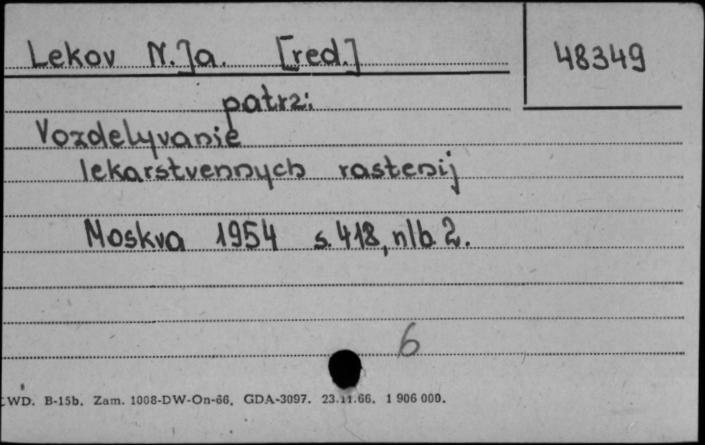 Lekov N. Ja. [red.]
48349
patrz:
Vozdelyvanie
lekarstvennych rastenij
Moskva 1954 s. 418, nlb 2.
6
CWD. B-15b. Zam. 1008-DW-On-66. GDA-3097. 23.11.66. 1 906 000.